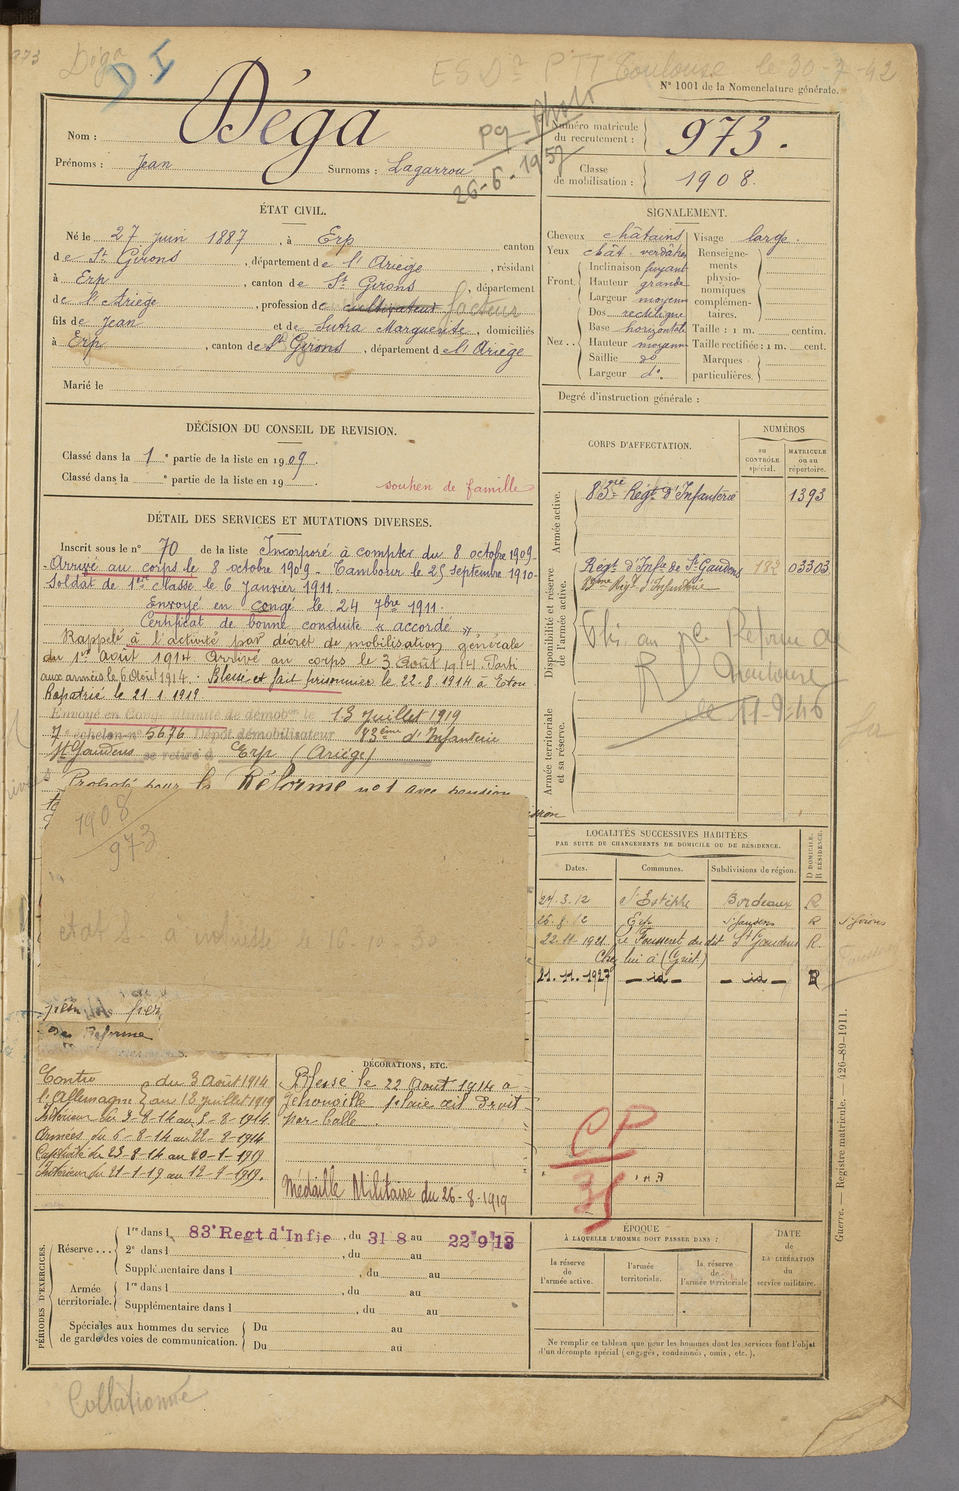 973
Déga
D I
ESDn PTT Toulouse le 30-7-42
N° 1001 de la Nomenclature générale.
Nom : Déga
Prénoms : Jean Surnoms : Lagarrou
pg
26-6-1957
Numéro matricule du recrutement : 973.
Classe de mobilisation : 1908.
ÉTAT CIVIL.
Né le 27 juin 1887, à Erp canton
de St Girons, département de l'Ariège, résidant
à Erp, canton de St Girons, département
de l'Ariège, profession de cultivateur facteur
fils de Jean et de Sutra Marguerite, domiciliés
à Erp, canton de St Girons, département de l'Ariège
Marié le
SIGNALEMENT.
Cheveux châtains Visage large.
Yeux chât. verdâtre
Front. Inclinaison fuyant
Hauteur grande
Largeur moyenn
Nez .. Dos rectiligne
Base horizontale
Hauteur moyenn
Saillie do
Largeur do.
Renseignements physionomiques complémentaires.
Taille : 1 m. centim.
Taille rectifiée : 1 m. cent.
Marques particulières.
Degré d'instruction générale :
DÉCISION DU CONSEIL DE REVISION.
Classé dans la 1e partie de la liste en 1909.
Classé dans la e partie de la liste en 19 .
soutien de famille
DÉTAIL DES SERVICES ET MUTATIONS DIVERSES.
Inscrit sous le n° 70 de la liste Incorporé à compter du 8 octobre 1909-
-Arrivé au corps le 8 octobre 1909 - Tambour le 25 septembre 1910-
Soldat de 1ère classe le 6 janvier 1911.
Envoyé en congé le 24 7bre 1911.
Certificat de bonne conduite « accordé »
Rappelé à l'activité par décret de mobilisation générale
du 1er août 1914 Arrivé au corps le 3 Août 1914. Parti
aux armées le 6 Août 1914. Blessé et fait prisonnier le 22.8.1914 à
Rapatrié le 21 1 1919
Envoyé en Congé illimité de démobon le 13 juillet 1919
7e échelon n° 5676 Dépôt démobilisateur 83ème d'Infanterie
St Gaudens se retire à Erp (Ariège)
Proposé pour la Réforme n°1 avec pension
1908
973
état S à le 16-10-30
Réforme
CORPS D'AFFECTATION.
NUMÉROS
au CONTRÔLE spécial.
MATRICULE ou au répertoire.
Armée active.
83me Régt d'Infanterie 1393
Disponibilité et réserve de l'armée active.
Régt d'Infie de St Gaudens 182 03303
83ème Régt d'Infanterie
Réforme
Toulouse
le 11-9-46
Armée territoriale et sa réserve.
LOCALITÉS SUCCESSIVES HABITÉES
PAR SUITE DE CHANGEMENTS DE DOMICILE OU DE RÉSIDENCE.
Dates. Communes. Subdivisions de région. D DOMICILE. R RÉSIDENCE.
24.3.12 St Estèphe Bordeaux R
26.8.12 Erp St Gaudens R St Girons
22.11-1921 Le Fousseret dit St Gaudens R
Chez lui à
21.11.1927 — id — — id — R
DÉCORATIONS, ETC.
Contre l'Allemagne du 3 Août 1914 au 12 juillet 1919
Intérieur du 3-8-14 au 5-8-1914
Armées du 6-8-14 au 22-8-1914
Captivité du 23-8-14 au 20-1-1919
Intérieur du 21-1-19 au 12-7-1919.
Blessé le 22 Août 1914 à
Jehonville plaie œil droit
par balle.
Médaille Militaire du 26-8-1919
CP
35
PÉRIODES D'EXERCICES.
Réserve ... 1re dans l 83e Regt d'Infie, du 31 8 au 22 9 13
2e dans l , du au
Supplémentaire dans l , du au
Armée territoriale. 1re dans l , du au
Supplémentaire dans l , du au
Spéciales aux hommes du service de garde des voies de communication. Du au
Du au
ÉPOQUE
À LAQUELLE L'HOMME DOIT PASSER DANS :
la réserve de l'armée active.
l'armée territoriale.
la réserve de l'armée territoriale
DATE de LA LIBÉRATION du service militaire.
Ne remplir ce tableau que pour les hommes dont les services font l'objet
d'un décompte spécial (engagés, condamnés, omis, etc.).
Guerre. — Registre matricule. — 426-89-1911.
Collationné